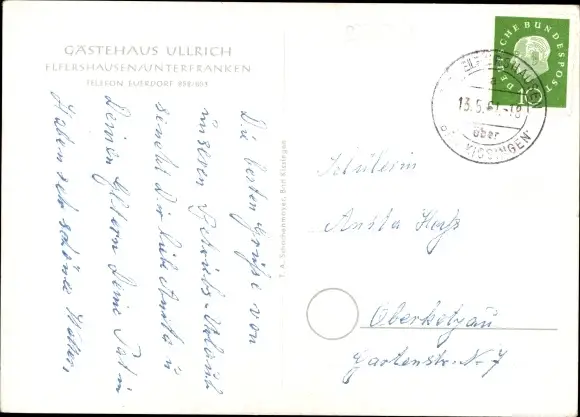 GÄSTEHAUS ULLRICH
ELFERSHAUSEN/UNTERFRANKEN
TELEFON EUERDORF 898/601
Die besten Grüße von
unseren Betriebs-Urlaub
sendet Dir liebe Anita u
Deinen Eltern Deine Pat in
Haben sehr schönes Wetter.
T. A. Schachenmayer, Bad Kissingen
DEUTSCHE BUNDESPOST
10
ELFERSHAUSEN
a
13.5.61.-18
über
BAD KISSINGEN
Schülerin
Anita
Oberkotzau
Gartenstr. N. 7